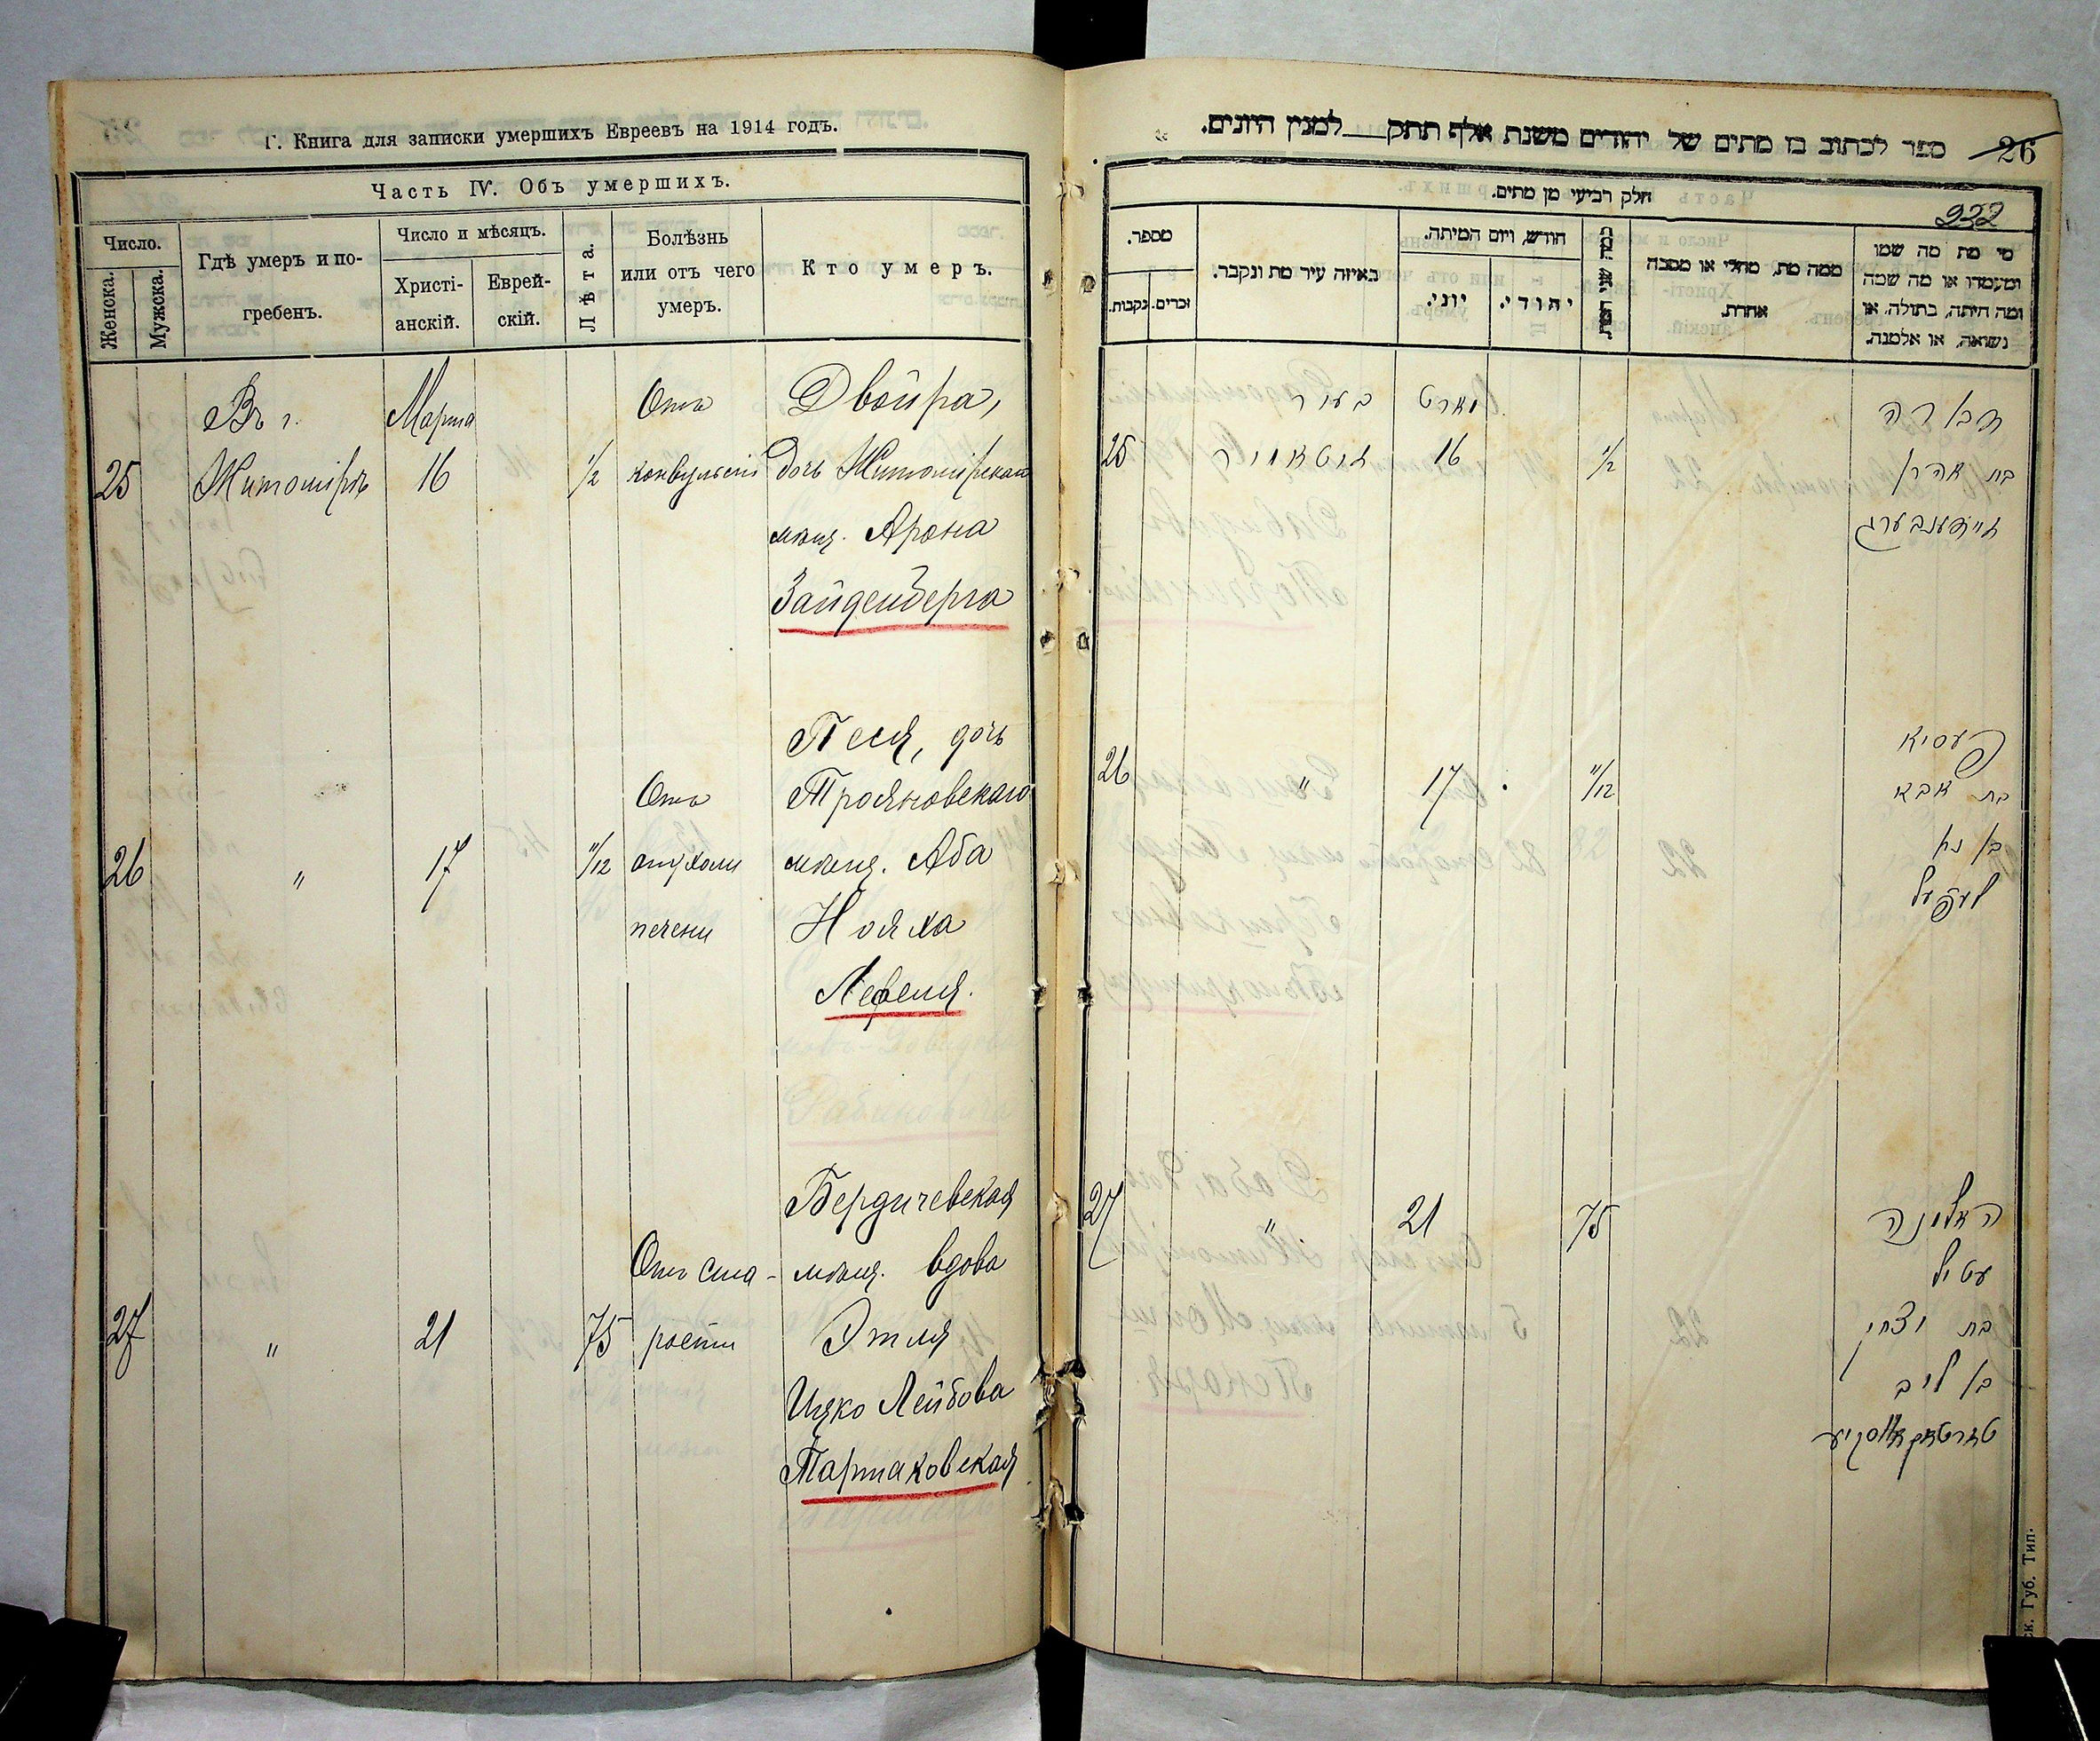 Г. Книга для записки умершихъ Евреевъ на 1914 годъ.
Часть IV. Объ умершихъ.
Число.
Женска.
Мужска.
Гдѣ умеръ и по-
гребенъ.
Число и мѣсяцъ.
Христі-
анскій.
Еврей-
скій.
Лѣта.
Болѣзнь
или отъ чего
умеръ.
Кто умеръ.
Въ г. Марта Отъ Двойра,
25 Житомірѣ 16 1/2 конвульсій дочь Житомірскаго
мѣщ. Арона
Зайденберга
Песя, дочь
Отъ Трояновскаго
26 " 17 11/12 опухоли мѣщ. Аба
печени Нояха
Лефеля.
Бердичевская
Отъ ста- мѣщ. вдова
27 " 21 75 рости Этля
Ицко Лейбова
Партаковская
ספר לכתוב בו מתים של יהודים משנת אלף תתק למנין היונים.
26
חלק רביעי מן מתים.
232
מספר.
נקבות.
זכרים.
באיזה עיר מת ונקבר.
חודש, ויום המיתה.
יוני.
יהודי.
כמה שני המת.
ממה מת, מחלי או מסבה
אחרת.
מי מת מה שמו
ומעמדו או מה שמה
ומה היתה, בתולה, או
נשואה, או אלמנה.
בעיר מארט דבורה
25 זיטאמיר 16 1/2 בת אהרן
זיידענבערג
פעסיא
26 " 17 11/12 בת אבא
בן נח
לעפעל
27 " 21 75 האלמנה
עטיל
בת יצחק
בן ליב
ск. Губ. Тип.